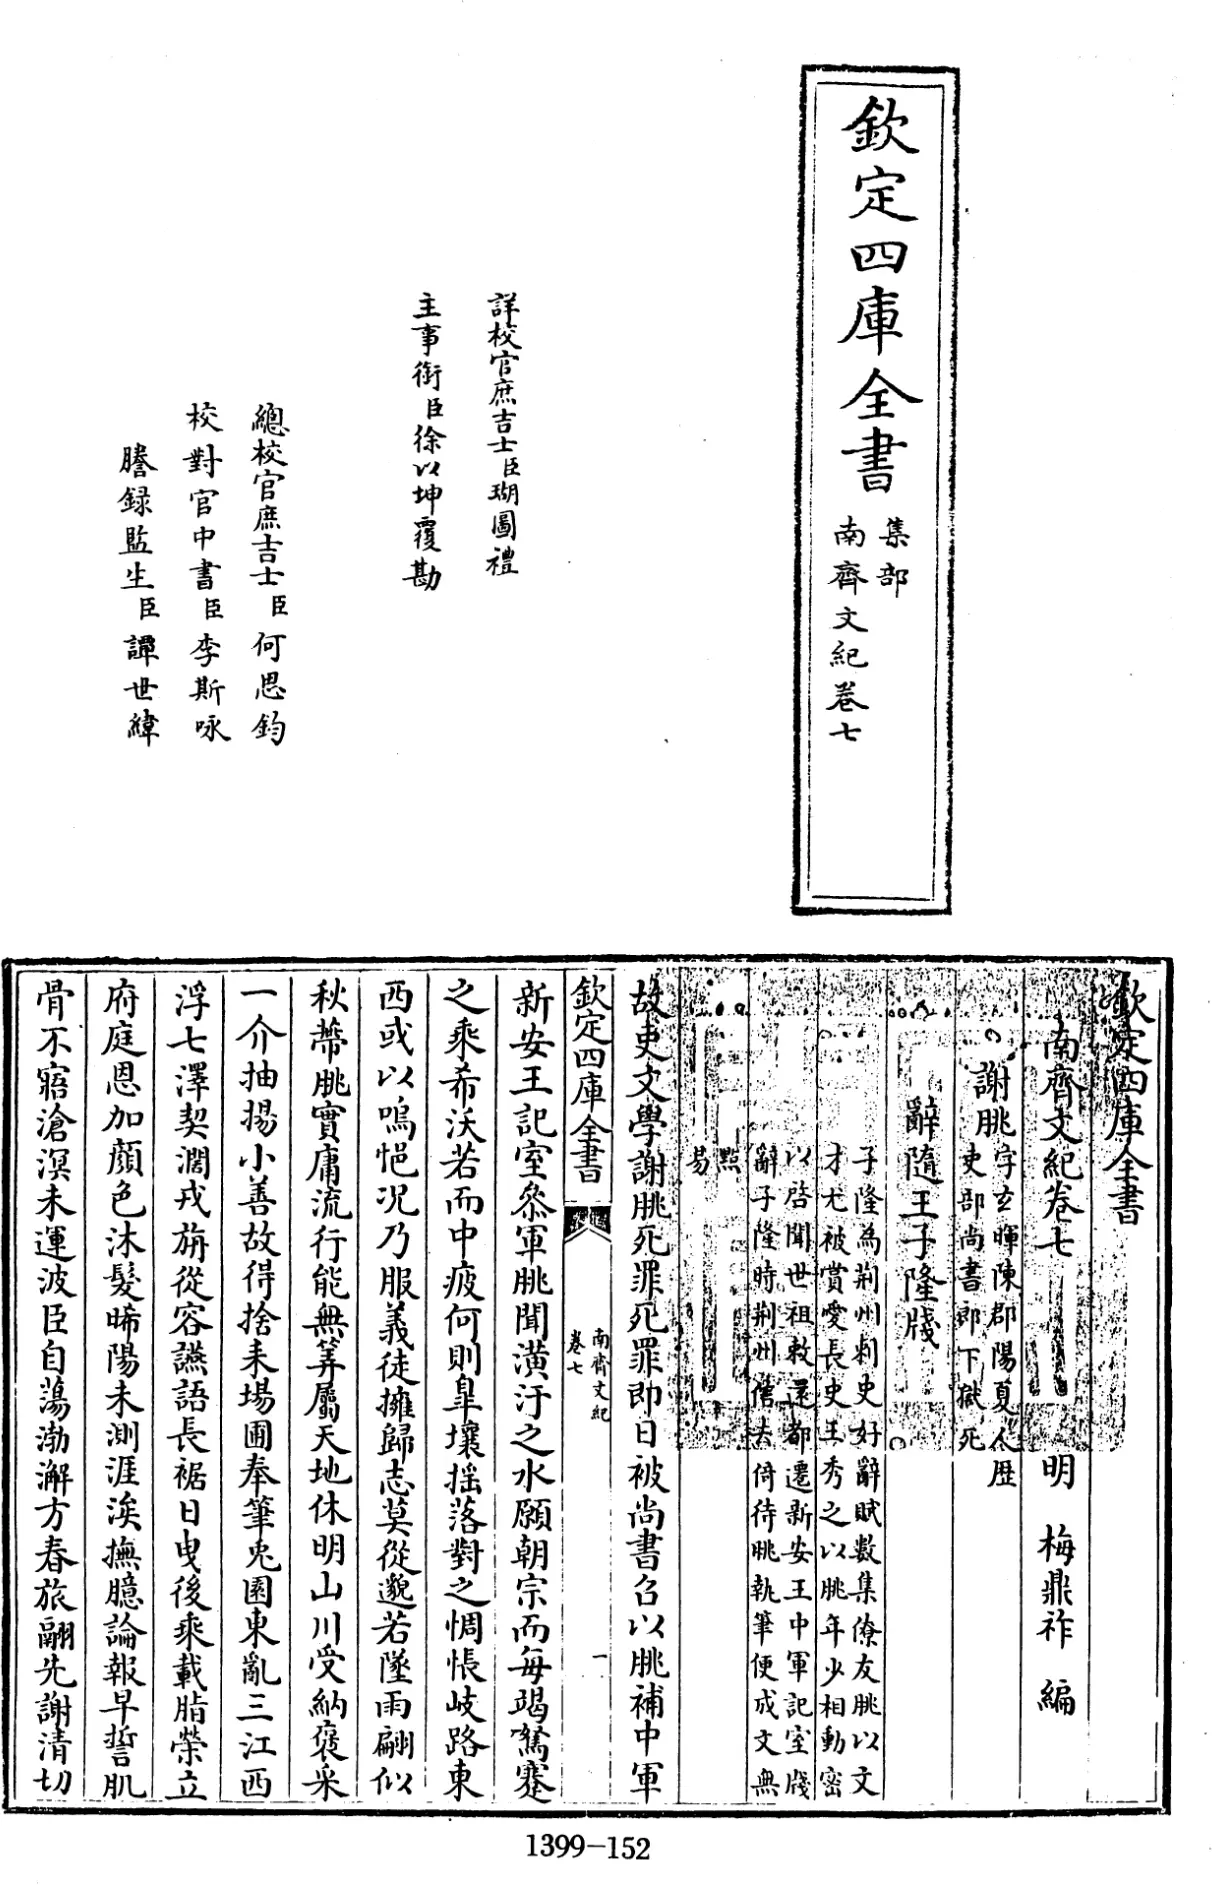 欽定四庫全書
集部
南齊文紀卷七
詳校官庶吉士臣瑚圖禮
主事銜臣徐以坤覆勘
總校官庶吉士臣何思鈞
校對官中書臣李斯咏
謄録監生臣譚世緯
欽定四庫全書
南齊文紀卷七
明 梅鼎祚 編
謝朓
字玄暉陳郡陽夏人歴
吏部尚書郎下獄死
辭隨王子隆牋
子隆為荆州刺史好辭賦數集僚友朓以文
才尤被賞愛長史王秀之以朓年少相動密
以啓聞世祖敕還都遷新安王中軍記室牋
辭子隆時荆州信去倚待朓執筆便成文無
點
易
故吏文學謝朓死罪死罪即日被尚書召以朓補中軍
新安王記室叅軍朓聞潢汙之水願朝宗而每竭駑蹇
之乘希沃若而中疲何則臯壤揺落對之惆悵岐路東
西或以嗚悒况乃服義徒擁歸志莫從邈若墜雨翩似
秋蔕朓實庸流行能無筭屬天地休明山川受納褒采
一介抽揚小善故得捨耒場圃奉筆兎園東亂三江西
浮七澤契濶戎旃從容讌語長裾日曳後乘載脂榮立
府庭恩加顔色沐髮晞陽未測涯涘撫臆論報早誓肌
骨不寤滄溟未運波臣自蕩渤澥方春旅翮先謝清切
欽定四庫全書
南齊文紀
卷七
一
1399-152